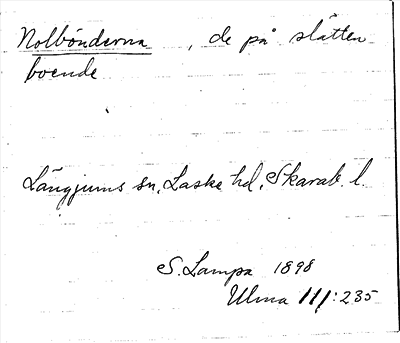 Nolbönderna, de på slätten
boende
Långjums sn, Laske hd, Skarab. l.
S. Lampa 1898
Ulma 111:235